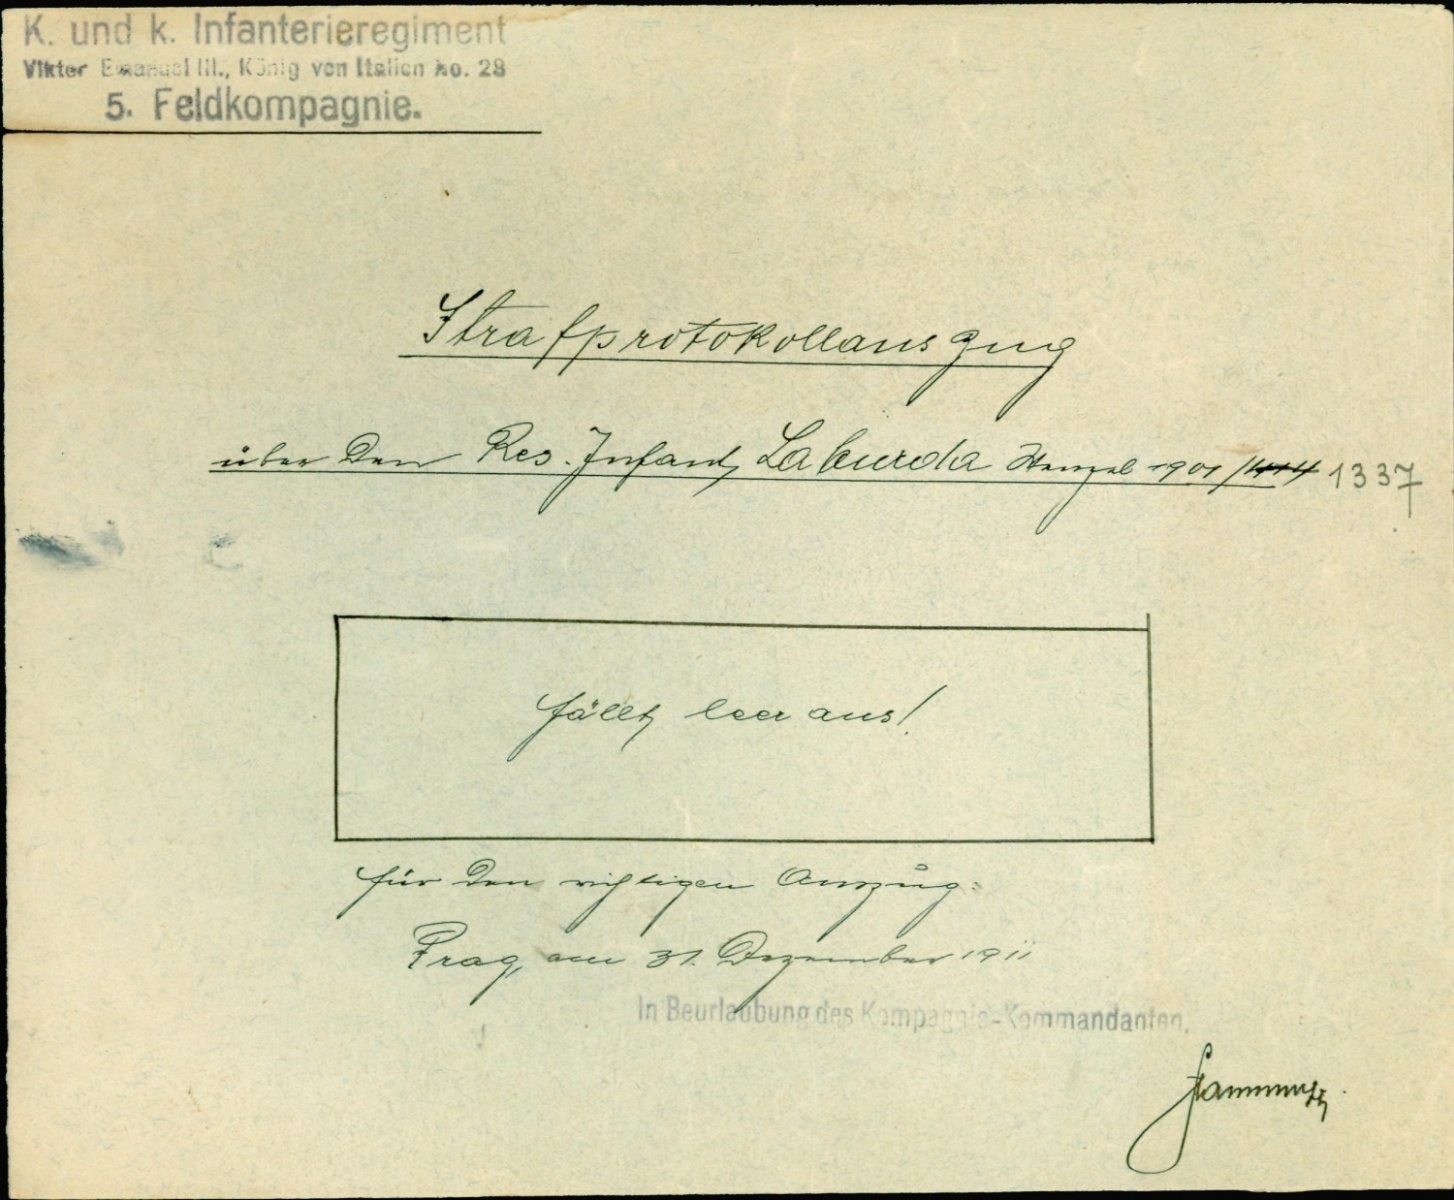 K. und k. Infanterieregiment
Viktor Emanuel III., König von Italien No. 28
5. Feldkompagnie.
Strafprotokollauszug
über den Res. Infant. Laburda Wenzel 1901/ 1337
fällt leer aus!
für den richtigen Auszug:
Prag, am 31. Dezember 1911
In Beurlaubung des Kompagnie-Kommandanten.